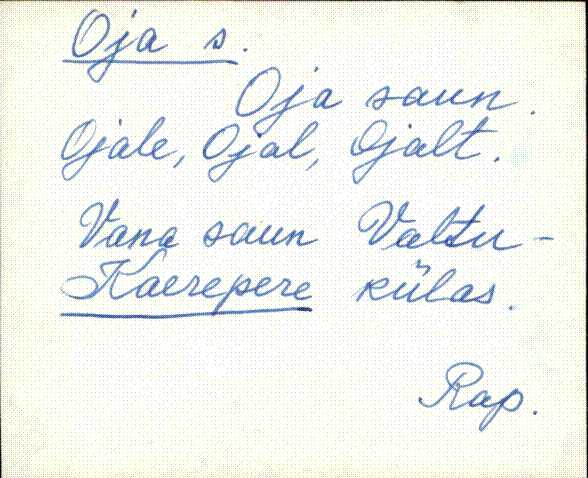 Oja s.
Oja saun.
Ojale, Ojal, Ojalt.
Vana saun Valtu-
Kaerepere külas.
Rap.